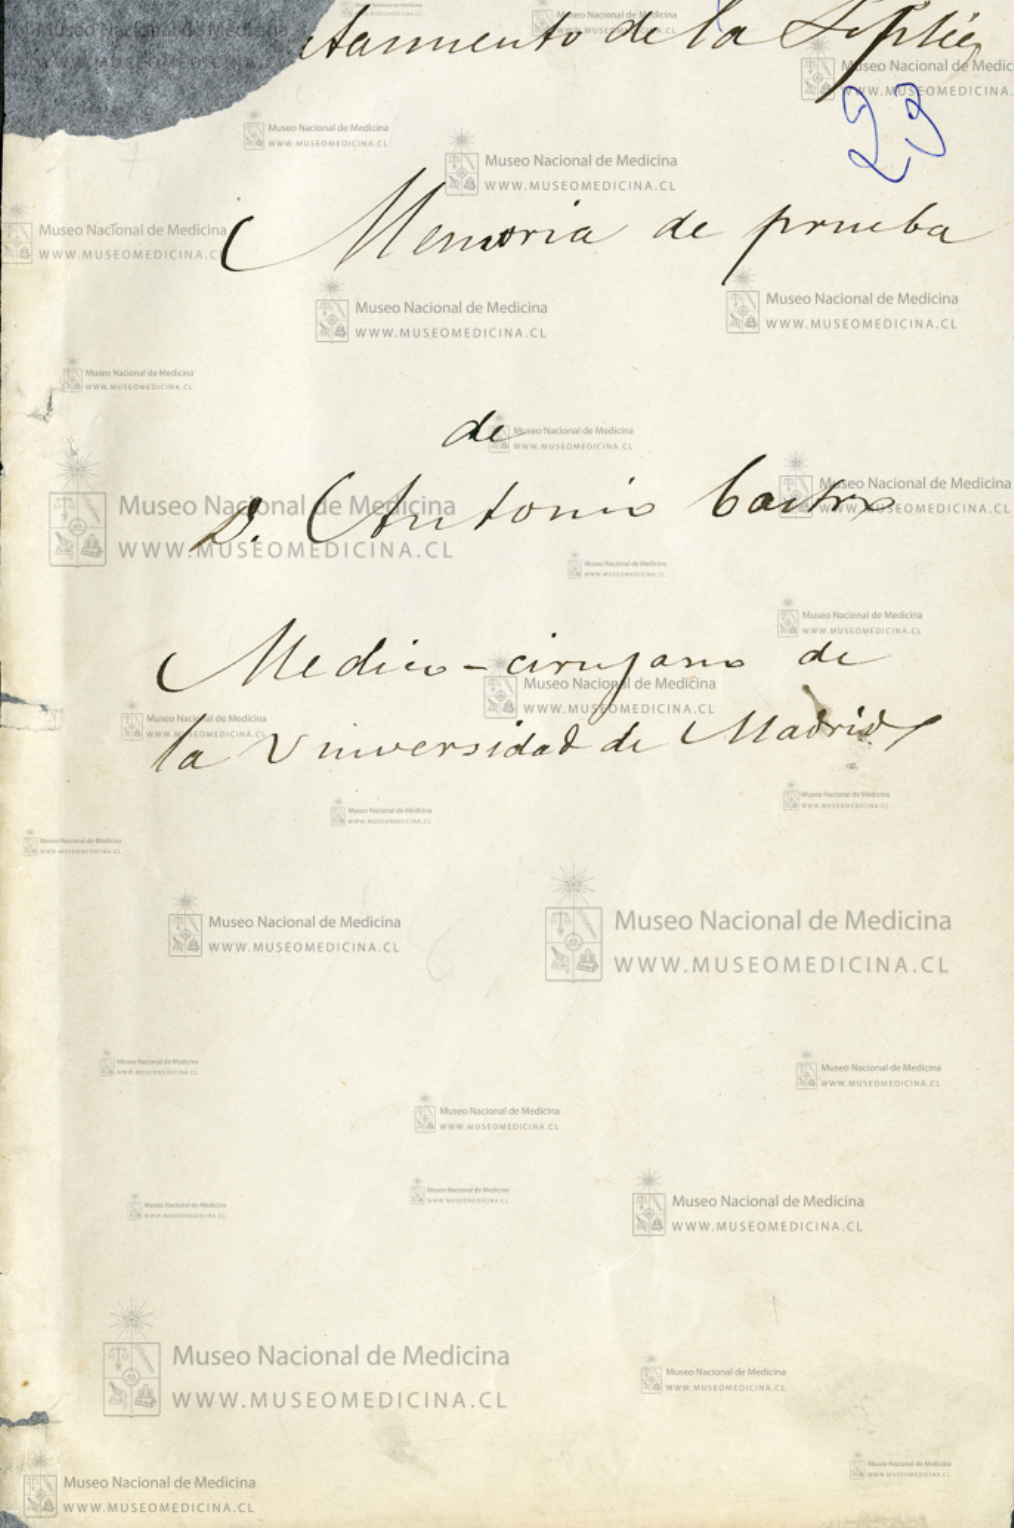 tamiento de la Sífilis
23
Memoria de prueba
de
D. Antonio Castro
Medico-cirujano de
la Universidad de Madrid
Museo Nacional de Medicina
WWW.MUSEOMEDICINA.CL